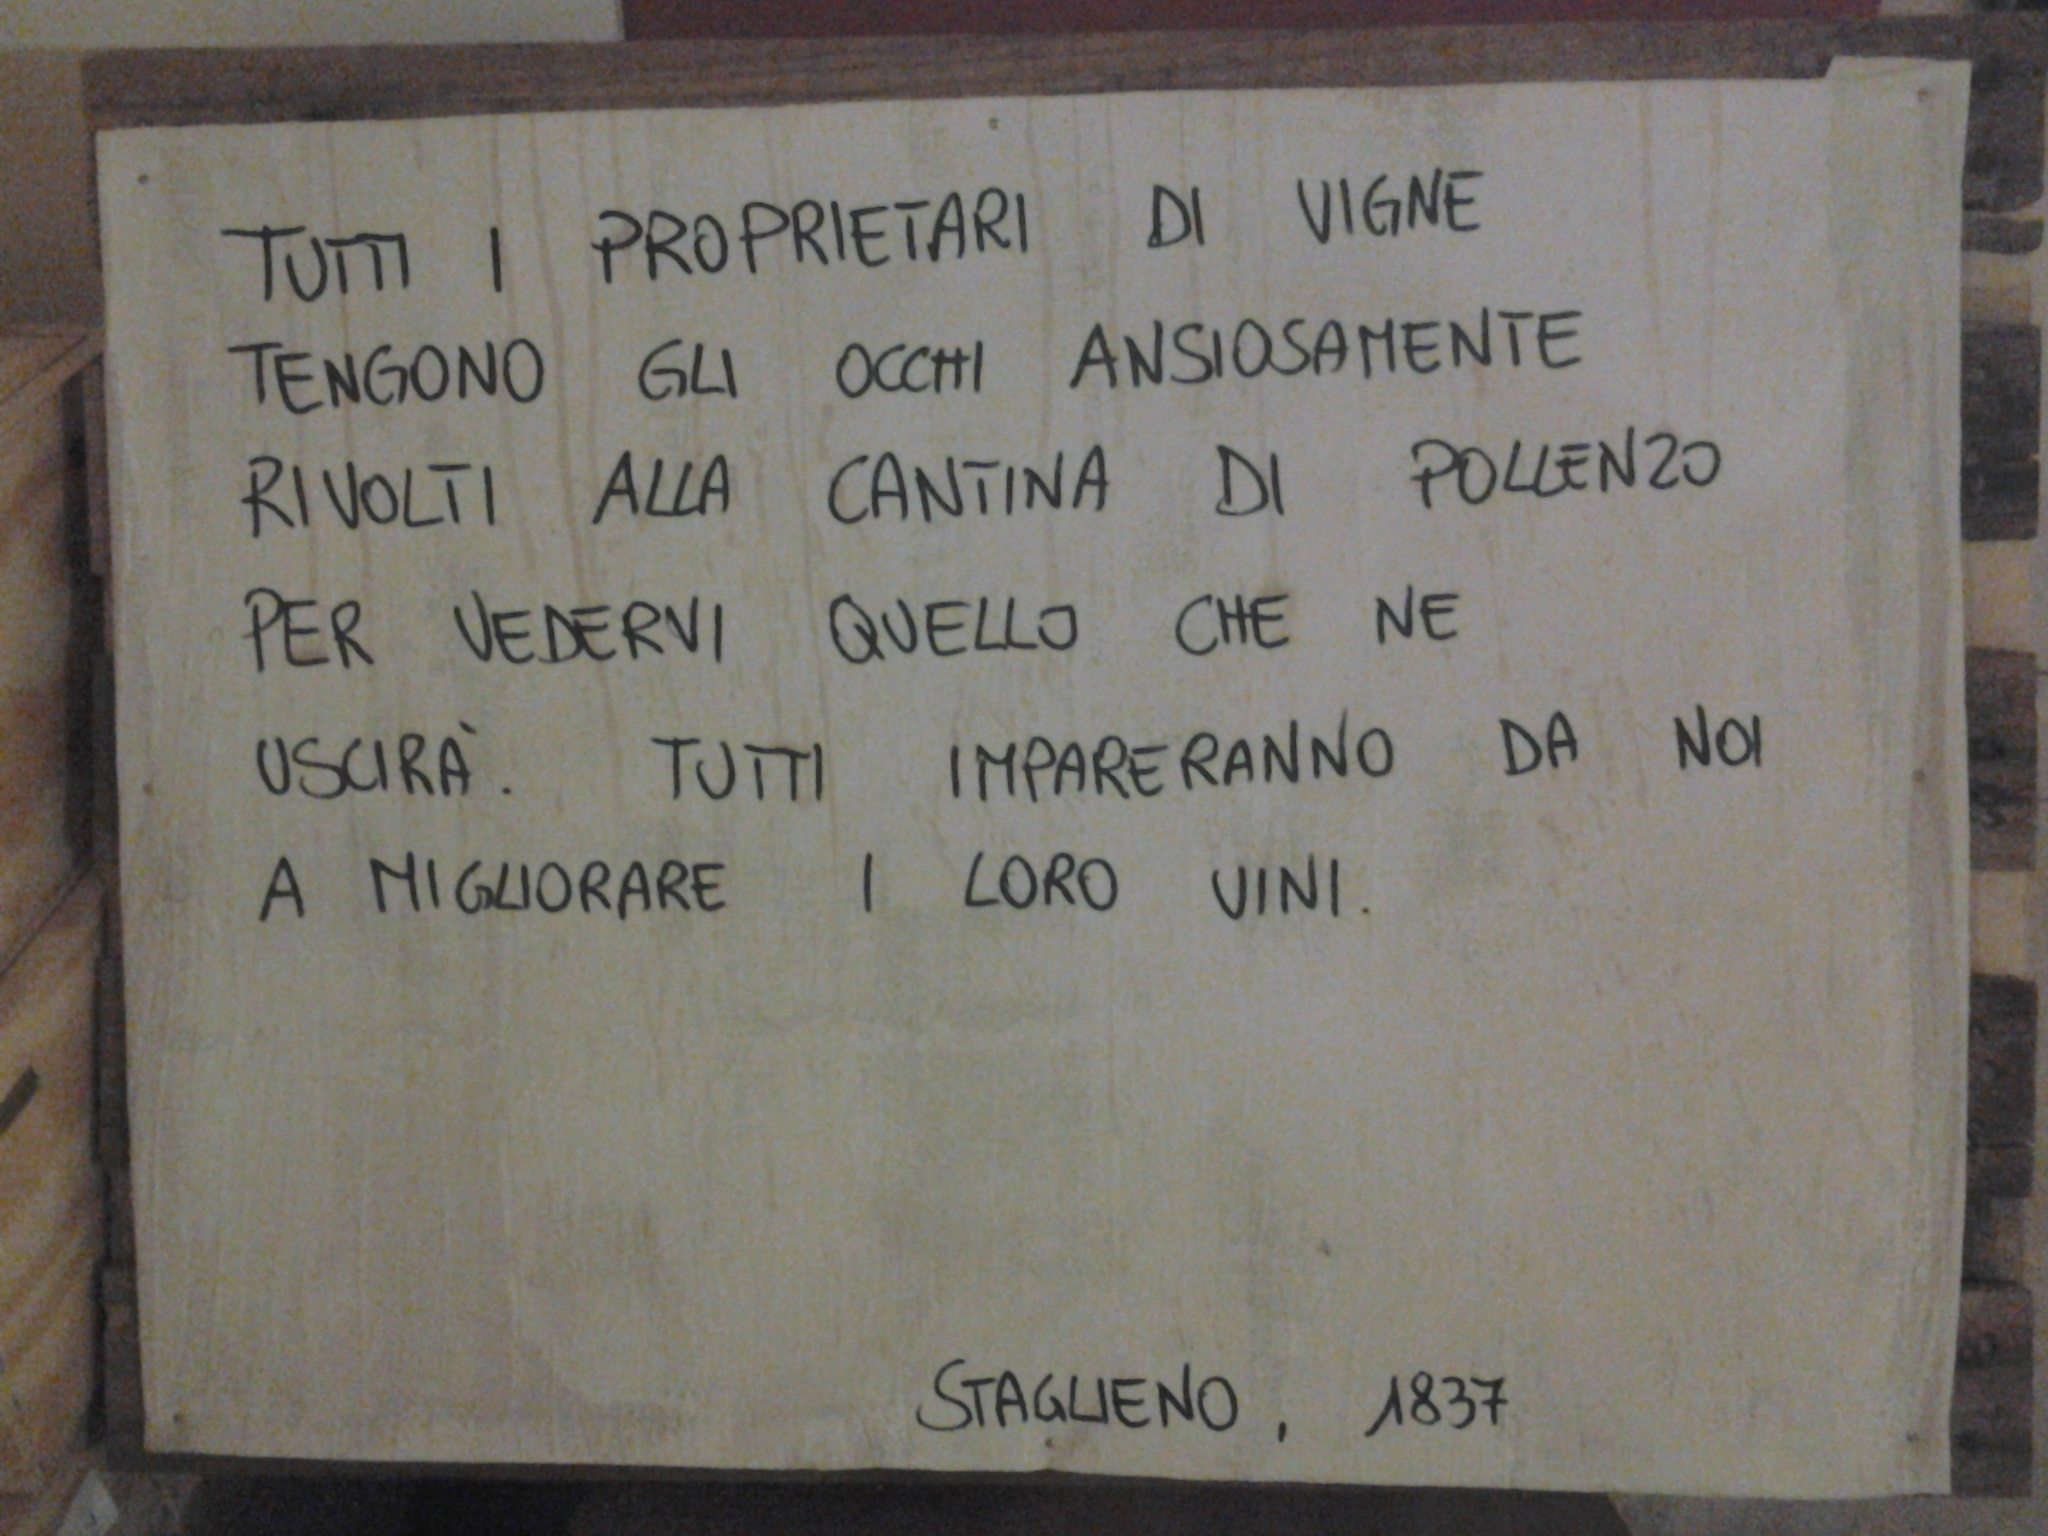 TUTTI I PROPRIETARI DI VIGNE
TENGONO GLI OCCHI ANSIOSAMENTE
RIVOLTI ALLA CANTINA DI POLLENZO
PER VEDERVI QUELLO CHE NE
USCIRÀ. TUTTI IMPARERANNO DA NOI
A MIGLIORARE I LORO VINI.
STAGLIENO, 1837